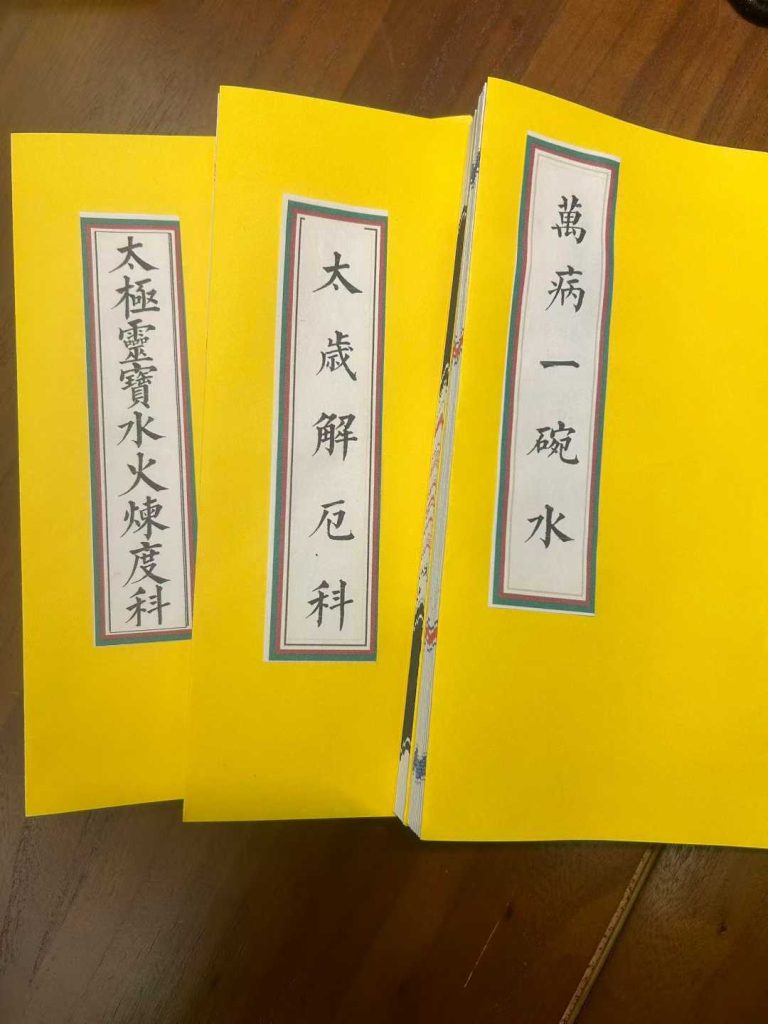 太極靈寶水火煉度科
太歲解厄科
萬病一碗水